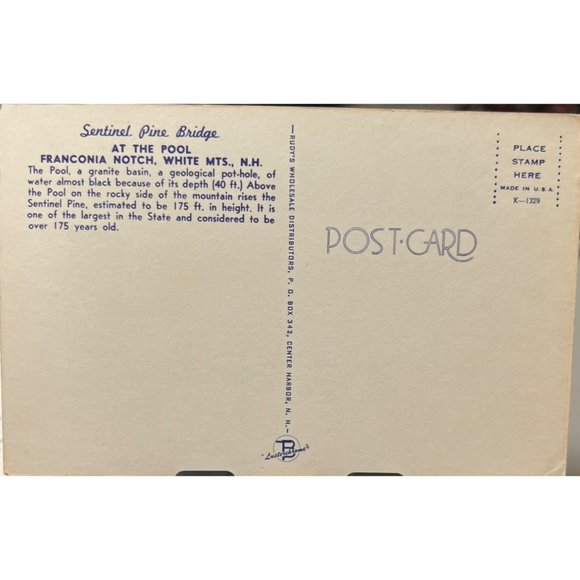 Sentinel Pine Bridge
AT THE POOL
FRANCONIA NOTCH, WHITE MTS., N.H.
The Pool, a granite basin, a geological pot-hole, of
water almost black because of its depth (40 ft.) Above
the Pool on the rocky side of the mountain rises the
Sentinel Pine, estimated to be 175 ft. in height. It is
one of the largest in the State and considered to be
over 175 years old.
—RUDY'S WHOLESALE DISTRIBUTORS, P. O. BOX 342, CENTER HARBOR, N. H.—
"Lusterchrome"
PLACE
STAMP
HERE
MADE IN U.S.A.
K—1329
POST·CARD